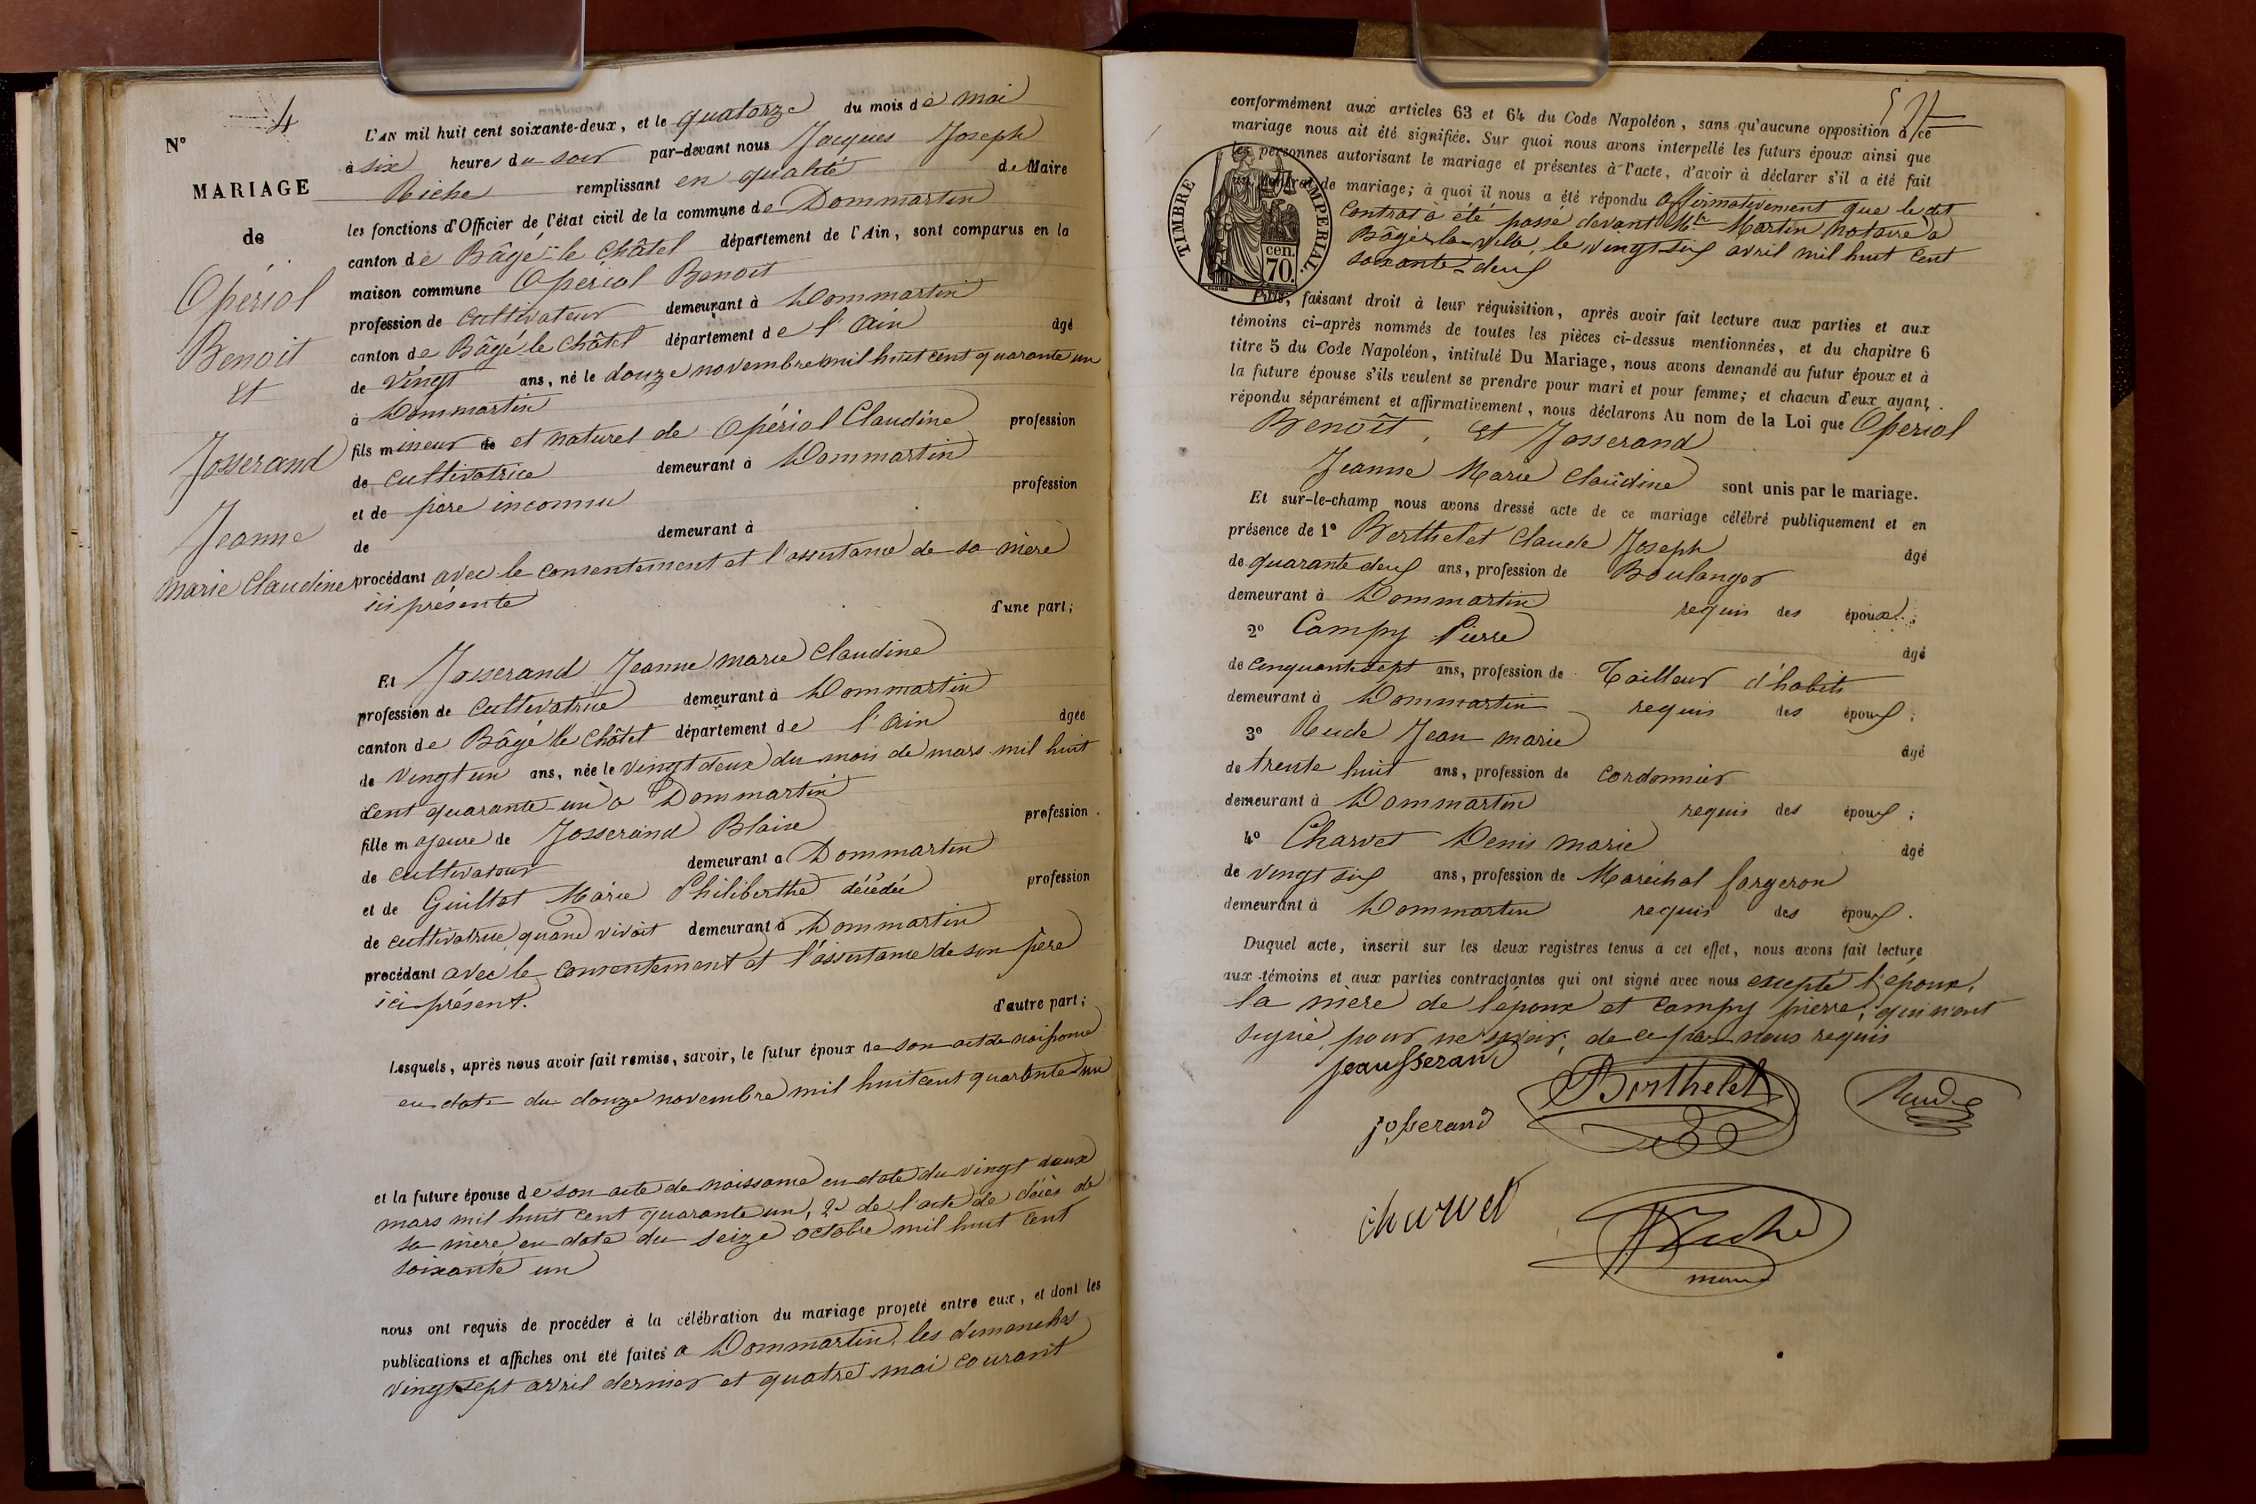 N° 4
MARIAGE
de
Opériol
Benoit
Et
Josserand
Jeanne
Marie Claudine
L'AN mil huit cent soixante-deux, et le quatorze du mois de Mai
à six heures du soir par-devant nous Jacques Joseph
Riche remplissant en qualité de Maire
les fonctions d'Officier de l'état civil de la commune de Dommartin
canton de Bâgé-le Châtel département de l'Ain, sont comparus en la
maison commune Opériol Benoit
profession de cultivateur demeurant à Dommartin
canton de Bâgé-le Châtel département de l'Ain âgé
de vingt ans, né le douze novembre mil huit cent quarante un
à Dommartin
fils mineur de et naturel de Opériol Claudine profession
de cultivatrice demeurant à Dommartin
et de père inconnu profession
de demeurant à
procédant avec le consentement et l'assistance de sa mère
ici présente d'une part;
Et Josserand Jeanne marie Claudine
profession de cultivatrice demeurant à Dommartin
canton de Bâgé le Châtel département de l'Ain âgée
de vingt un ans, née le vingt deux du mois de mars mil huit
cent quarante-un à Dommartin
fille majeure de Josserand Blaise profession
de cultivateur demeurant à Dommartin
et de Guillot Marie Philiberthe décédée profession
de cultivatrice quand vivait demeurant à Dommartin
procédant avec le consentement et l'assistance de son père
ici présent. d'autre part;
Lesquels, après nous avoir fait remise, savoir, le futur époux de son acte de naissance
en date du douze novembre mil huit cent quarante un
et la future épouse de son acte de naissance en date du vingt deux
mars mil huit cent quarante un, 2° de l'acte de décès de
sa mère en date du seize octobre mil huit cent
soixante un
nous ont requis de procéder à la célébration du mariage projeté entre eux, et dont les
publications et affiches ont été faites à Dommartin, les dimanches
vingt sept avril dernier et quatre mai courant
conformément aux articles 63 et 64 du Code Napoléon, sans qu'aucune opposition à ce
mariage nous ait été signifiée. Sur quoi nous avons interpellé les futurs époux ainsi que
les personnes autorisant le mariage et présentes à l'acte, d'avoir à déclarer s'il a été fait
un contrat de mariage; à quoi il nous a été répondu affirmativement que le dit
Contrat à été passé devant Me Martin Notaire à
Bâgé-la-ville, le vingt-six avril mil huit cent
soixante-deux
TIMBRE IMPERIAL.
cen.
70.
Puis, faisant droit à leur réquisition, après avoir fait lecture aux parties et aux
témoins ci-après nommés de toutes les pièces ci-dessus mentionnées, et du chapitre 6
titre 5 du Code Napoléon, intitulé Du Mariage, nous avons demandé au futur époux et à
la future épouse s'ils veulent se prendre pour mari et pour femme; et chacun d'eux ayant
répondu séparément et affirmativement, nous déclarons Au nom de la Loi que Opériol
Benoît, Et Josserand
Jeanne Marie Claudine sont unis par le mariage.
Et sur-le-champ nous avons dressé acte de ce mariage célébré publiquement et en
présence de 1° Berthelet Claude Joseph âgé
de quarante deux ans, profession de Boulanger
demeurant à Dommartin requis des époux;
2° Campy Pierre âgé
de cinquante sept ans, profession de Tailleur d'habits
demeurant à Dommartin requis des époux;
3° Reude Jean marie âgé
de trente huit ans, profession de cordonnier
demeurant à Dommartin requis des époux;
4° Charvet Denis marie âgé
de vingt six ans, profession de Maréchal forgeron
demeurant à Dommartin requis des époux.
Duquel acte, inscrit sur les deux registres tenus à cet effet, nous avons fait lecture
aux témoins et aux parties contractantes qui ont signé avec nous excepté l'époux,
la mère de l'époux et Campy pierre, qui n'ont
signé pour ne savoir, de ce par nous requis
josserand
Berthelet
Reude
charvet
Riche
maire